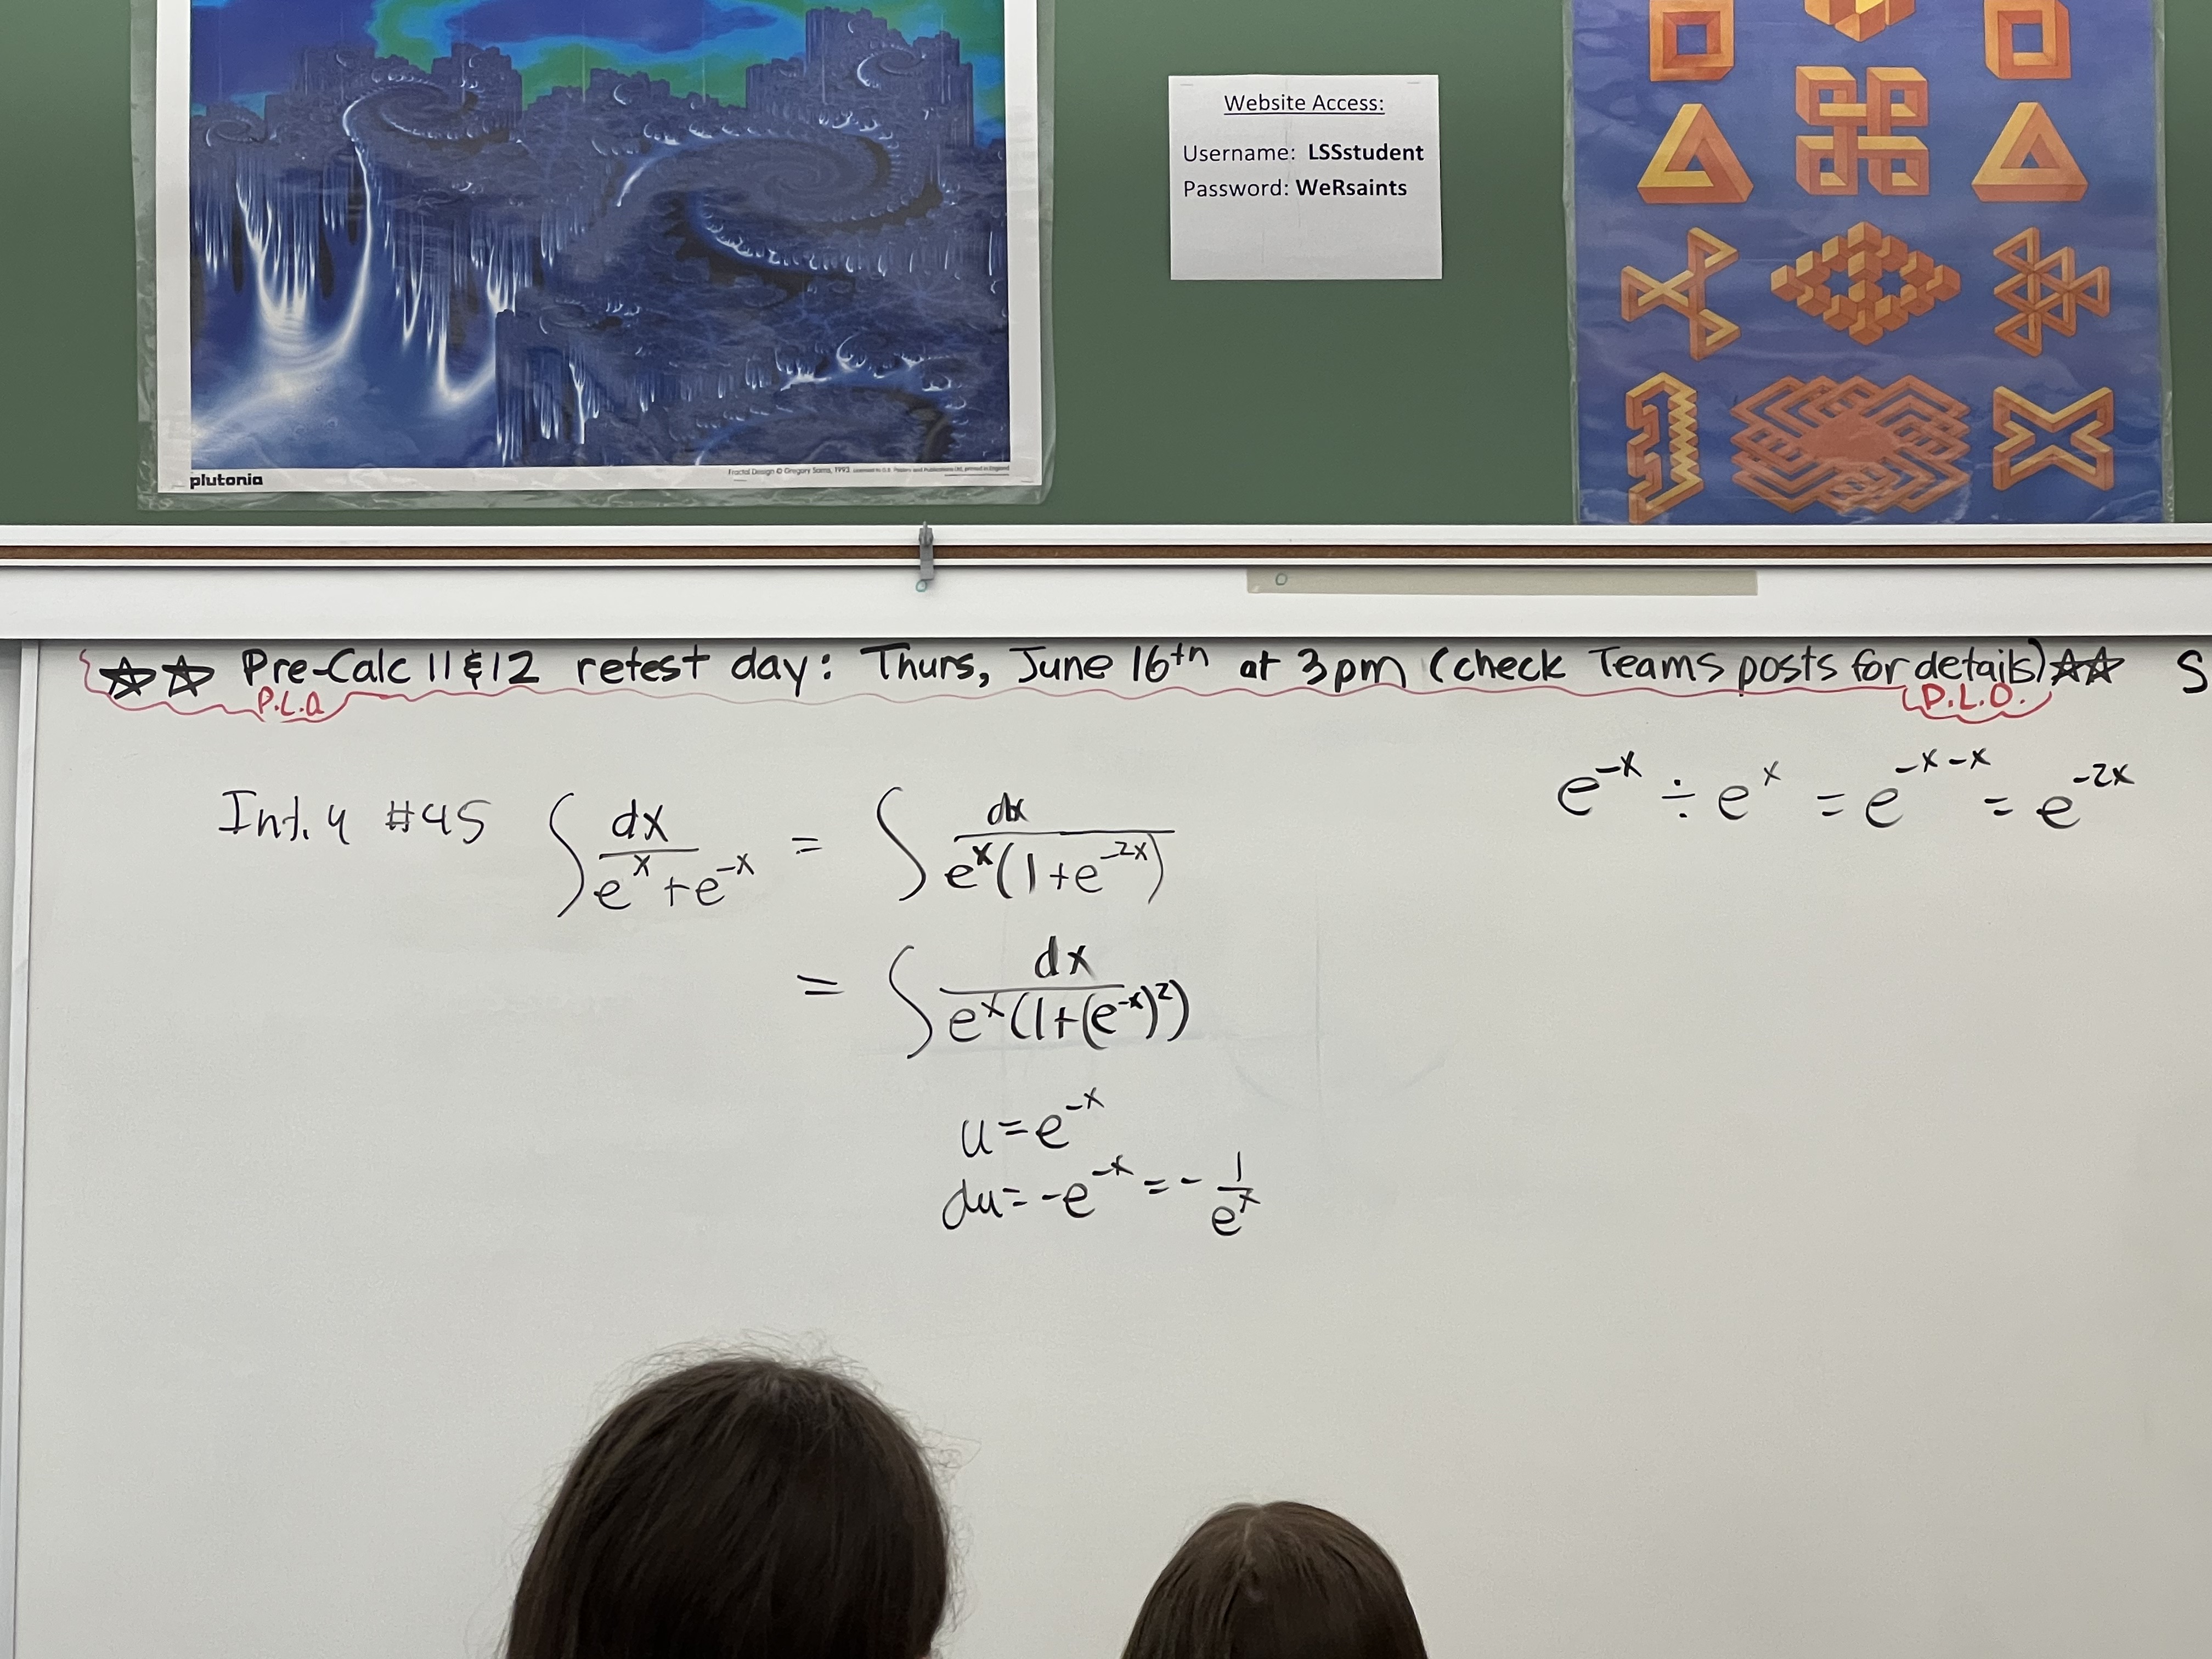 Website Access:
Username: LSSstudent
Password: WeRsaints
plutonia
Fractal Design © Gregory Sams, 1993
☆☆ Pre-Calc 11 & 12 retest day: Thurs, June 16th at 3pm (check Teams posts for details) ☆☆ S
P.L.O. P.L.O.
Int. 4 #45 ∫ dx/(e^x + e^-x) = ∫ dx/(e^x(1+e^-2x))
e^-x ÷ e^x = e^-x-x = e^-2x
= ∫ dx/(e^x(1+(e^-x)^2))
u = e^-x
du = -e^-x = - 1/e^x